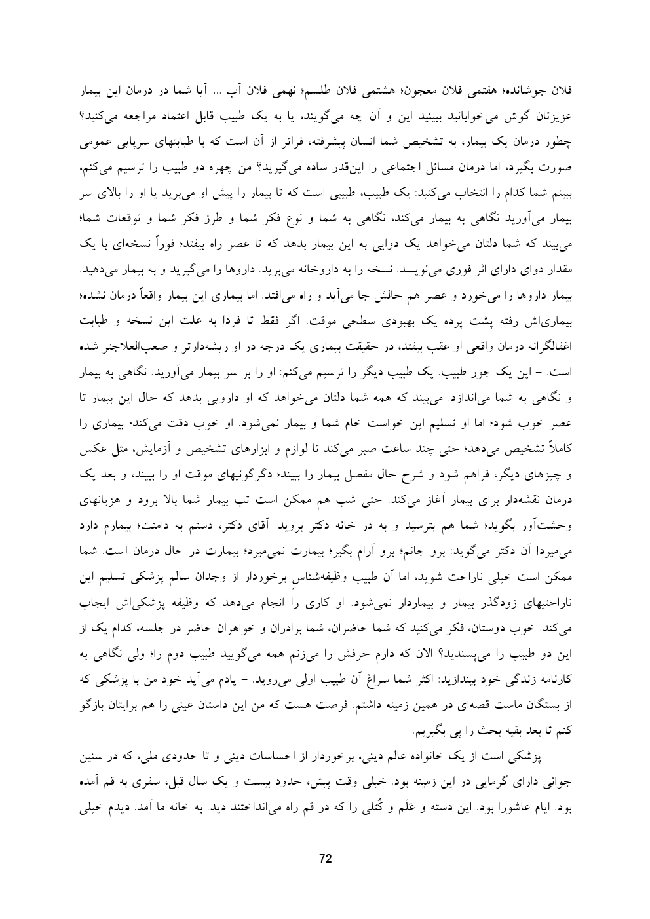 فلان جوشانده؛ هفتمی فلان معجون؛ هشتمی فلان طلسم؛ نهمی فلان آب ... آیا شما در درمان این بیمار
عزیزتان گوش می‌خوابانید ببینید این و آن چه می‌گویند، یا به یک طبیب قابل اعتماد مراجعه می‌کنید؟
چطور درمان یک بیمار، به تشخیص شما انسان پیشرفته، فراتر از آن است که با طبابتهای سرپایی عمومی
صورت بگیرد، اما درمان مسائل اجتماعی را این‌قدر ساده می‌گیرید؟ من چهره دو طبیب را ترسیم می‌کنم،
ببینم شما کدام را انتخاب می‌کنید: یک طبیب، طبیبی است که تا بیمار را پیش او می‌برید یا او را بالای سر
بیمار می‌آورید نگاهی به بیمار می‌کند، نگاهی به شما و نوع فکر شما و طرز فکر شما و توقعات شما؛
می‌بیند که شما دلتان می‌خواهد یک دوایی به این بیمار بدهد که تا عصر راه بیفتد؛ فوراً نسخه‌ای با یک
مقدار دوای دارای اثر فوری می‌نویسد. نسخه را به داروخانه می‌برید. داروها را می‌گیرید و به بیمار می‌دهید.
بیمار داروها را می‌خورد و عصر هم حالش جا می‌آید و راه می‌افتد. اما بیماری این بیمار واقعاً درمان نشده؛
بیماری‌اش رفته پشت پرده یک بهبودی سطحی موقت. اگر فقط تا فردا به علت این نسخه و طبابت
اغفالگرانه درمان واقعی او عقب بیفتد، در حقیقت بیماری یک درجه در او ریشه‌دارتر و صعب‌العلاجتر شده
است. - این یک جور طبیب. یک طبیب دیگر را ترسیم می‌کنم: او را بر سر بیمار می‌آورید. نگاهی به بیمار
و نگاهی به شما می‌اندازد. می‌بیند که همه شما دلتان می‌خواهد که او دارویی بدهد که حال این بیمار تا
عصر خوب شود؛ اما او تسلیم این خواست خام شما و بیمار نمی‌شود. او خوب دقت می‌کند؛ بیماری را
کاملاً تشخیص می‌دهد؛ حتی چند ساعت صبر می‌کند تا لوازم و ابزارهای تشخیص و آزمایش، مثل عکس
و چیزهای دیگر، فراهم شود و شرح حال مفصل بیمار را ببیند؛ دگرگونیهای موقت او را ببیند، و بعد یک
درمان نقشه‌دار برای بیمار آغاز می‌کند. حتی شب هم ممکن است تب بیمار شما بالا برود و هزیانهای
وحشت‌آور بگوید؛ شما هم بترسید و به در خانه دکتر بروید. آقای دکتر، دستم به دامنت؛ بیمارم دارد
می‌میرد! آن دکتر می‌گوید: برو جانم؛ برو آرام بگیر؛ بیمارت نمی‌میرد؛ بیمارت در حال درمان است. شما
ممکن است خیلی ناراحت شوید، اما آن طبیب وظیفه‌شناس برخوردار از وجدان سالم پزشکی تسلیم این
ناراحتیهای زودگذر بیمار و بیماردار نمی‌شود. او کاری را انجام می‌دهد که وظیفه پزشکی‌اش ایجاب
می‌کند. خوب دوستان، فکر می‌کنید که شما حاضران، شما برادران و خواهران حاضر در جلسه، کدام یک از
این دو طبیب را می‌پسندید؟ الان که دارم حرفش را می‌زنم همه می‌گویید طبیب دوم را؛ ولی نگاهی به
کارنامه زندگی خود بیندازید: اکثر شما سراغ آن طبیب اولی می‌روید. - یادم می‌آید خود من با پزشکی که
از بستگان ماست قصه‌ی در همین زمینه داشتم. فرصت هست که من این داستان عینی را هم برایتان بازگو
کنم تا بعد بقیه بحث را پی بگیریم.
پزشکی است از یک خانواده عالم دینی، برخوردار از احساسات دینی و تا حدودی ملی، که در سنین
جوانی دارای گرمایی در این زمینه بود. خیلی وقت پیش، حدود بیست و یک سال قبل، سفری به قم آمده
بود. ایام عاشورا بود. این دسته و علم و کُتَلی را که در قم راه می‌انداختند دید. به خانه ما آمد. دیدم خیلی
72